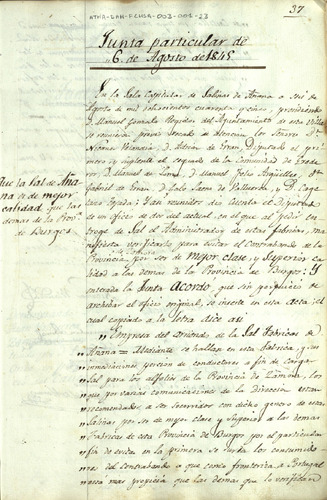 ATHA-DAH-FCHSA-003-001-23
37
Junta particular de
6. de Agosto de 1845
En la Sala Capitular de Salinas de Añana a Seis de
Agosto de mil ochocientos cuarenta y cinco, presidiendo
Manuel Regidor del Ayuntamiento de esta Villa
se reunieron previo de los Señores Dn
D. Adrian de Eran, Diputado el pri
mero, y Sindico el segundo de la Comunidad de Erede
ros, D. Manuel de D. Manuel Felix Arguelles, Dn
Gabriel de Eran, D. de y D.
Y asi reunidos dio cuenta el Diputado
de un oficio de dos del actual, en el que al pedir en
trega de Sal el Administrador de estas fabricas, ma
nifiesta verificarlo para evitar el Contrabando de la
Provincia, por ser de mejor clase y Superior ca
lidad a las demas de la Provincia de Burgos: Y
enterada la Junta Acordó, que sin perjuicio de
archibar el oficio original, se inserte en esta Acta, el
cual copiado a la letra dice asi
Que la Sal de Aña
na es de mejor
calidad que las
demas de la Prova
de Burgos
"Empresa del Arriendo de la Sal, Fabricas de
Añana = Hallandose en esta Fabrica, y sus
inmediaciones porcion de conductores a fin de cargar
Sal para los alfolies de la Provincia de Zamora, los
que por varias comunicaciones de la Direccion estan
recomendados a ser Socorridos con dicho genero de estas
Salinas por ser de mejor clase y Superior a las demas
Fabricas de esta Provincia de Burgos, por el particular
fin de evitar en la primera se surta los consumido
res del contrabando a que como fronteriza a Portugal
esta mas propicia que las demas que lo verifican